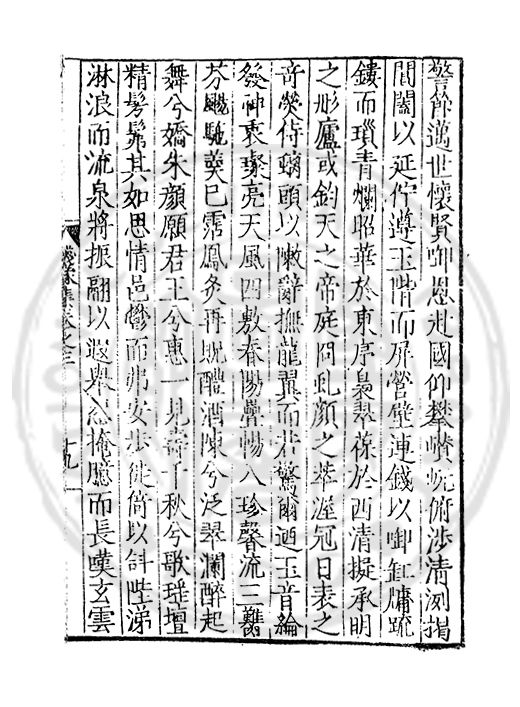 警節邁世懷賢啣恩赴國仰攀巑岏俯涉清洌指
閶闔以延佇遵玉階而屏營璧連錢以啣釭牗疏
鏤而瑣青爛昭華於東序梟翠葆於西清擬承明
之彤廬或鈞天之帝庭冏虬顔之萃渥冠日表之
奇熒侍螭頭以敶辭撫龍翼而若驚爾迺玉音綸
發神褱璨亮天風四敷春陽舋暢八珍馨流三
芬颺馳羮已霑鳳炙再貺醴酒陳兮泛翠瀾醉起
舞兮嬌朱顔願君王兮惠一見壽千秋兮歌瑶壇
精髣髴其如思情邑鬱而弗安步徙倚以斜陛涕
淋浪而流泉將振翮以遐舉忽掩臆而長嘆玄雲
集卷之三
十九